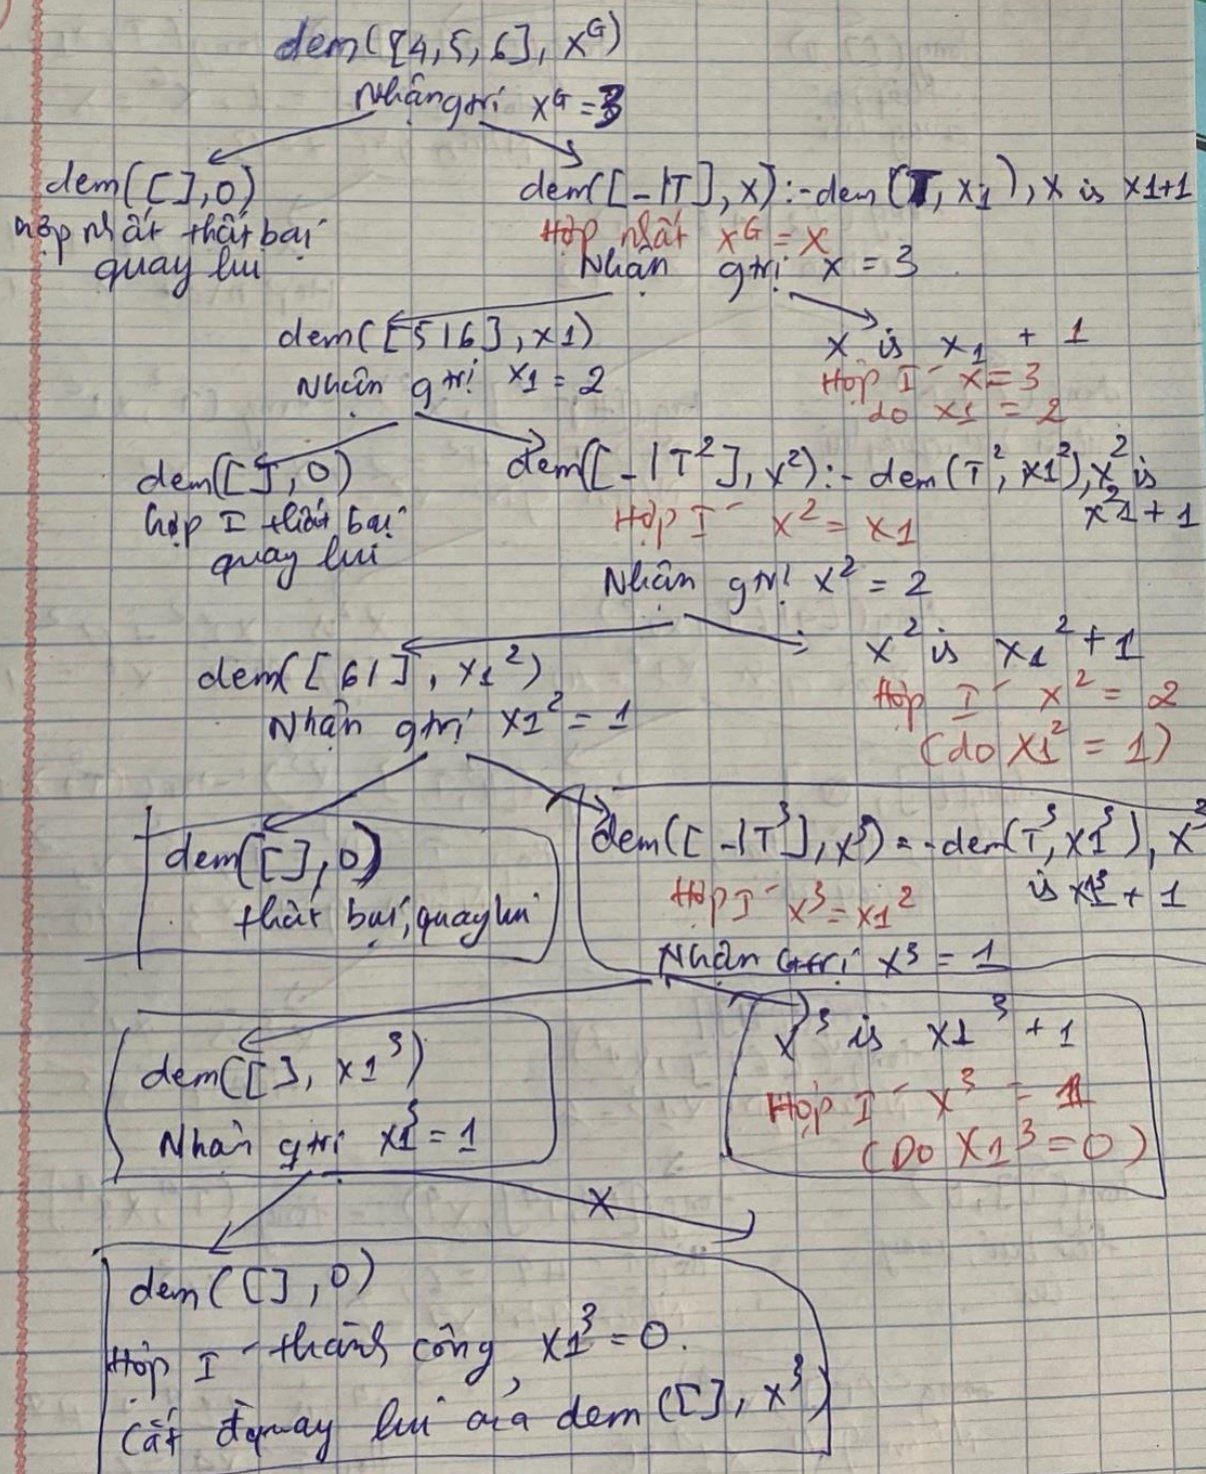 dem([4,5,6], X^G)
Nhận gtrị X^G = 3
dem([],0)
hợp nhất thất bại
quay lui
dem([_|T],X):-dem(T,X1),X is X1+1
Hợp nhất X^G = X
Nhận gtrị X = 3
dem([5|6],X1)
Nhận gtrị X1 = 2
X is X1 + 1
Hợp I X=3
do X1 = 2
dem([],0)
hợp I thất bại
quay lui
dem([_|T^2],X^2):- dem(T^2,X1^2),X^2 is
X^2 1+1
Hợp I X^2 = X1
Nhận gtrị X^2 = 2
dem([6|],X1^2)
Nhận gtrị X1^2 = 1
X^2 is X1^2 + 1
Hợp I X^2 = 2
(do X1^2 = 1)
dem([],0)
thất bại, quay lui
dem([_|T^3],X^3) = -dem(T^3,X1^3),X^3
is X1^3 + 1
Hợp I X^3 = X1^2
Nhận Gtrị X^3 = 1
dem([],X1^3)
Nhận gtrị X1^3 = 1
X^3 is X1^3 + 1
Hợp I X^3 = 1
(Do X1^3 = 0)
X
dem([],0)
Hợp I thành công, X1^3 = 0.
Cắt quay lui của dem([],X^3)